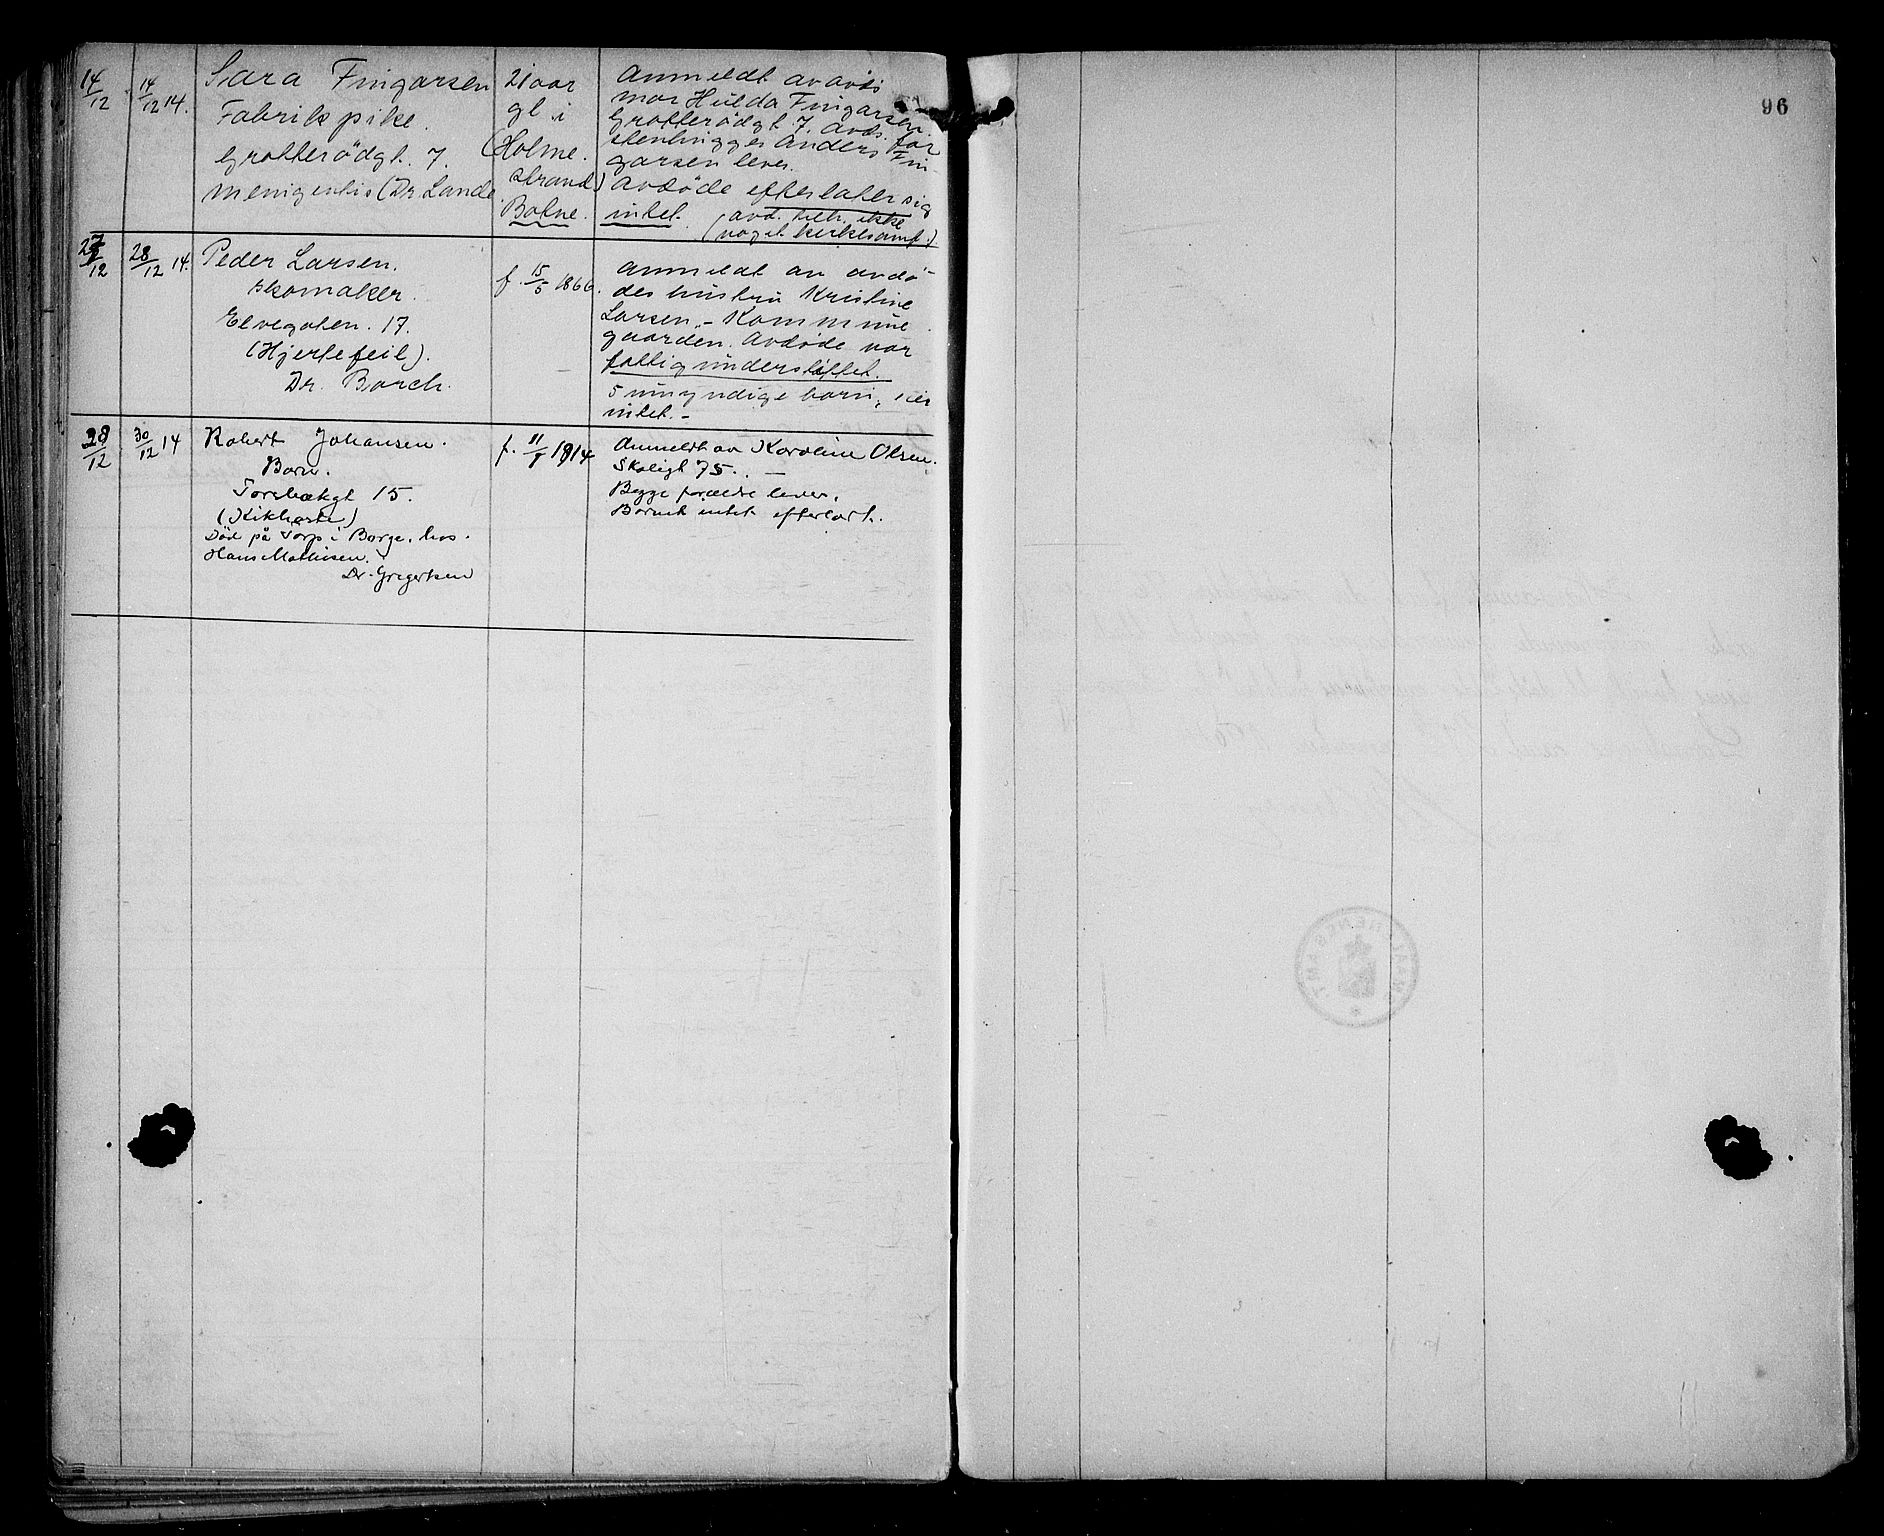 14/12
14/12 14.
Sara Fingarsen
Fabrikpike.
Grotterødgt. 7.
menigentis (Dr. Lande
21 aar
gl. i
(Holme.
strand)
Botne.
Anmeldt av avds
mor Hulda Fingarsen.
Grotterødgt 7. Avds. far
stenhugger Anders Fin-
garsen lever.
Avdøde efterlater sig
intet. (avd. tilh. ikke
noget kirkesamf.)
27/12
28/12 14.
Peder Larsen.
skomaker.
Elvegaten. 17.
(Hjertefeil).
Dr. Borch.
f. 15/5 1866.
Anmeldt av avdø-
des hustru Kristine
Larsen, - Kommune
gaarden. Avdøde var
fattigunderstøttet.
5 umyndige barn, eier
intet. -
28/12
30/12 14
Robert Johansen.
Barn.
Torsbækgt 15.
(Kikhoste)
Död på Torp i Borge, hos
Hans Mathisen.
Dr. Gregertsen
f. 11/8 1914
Anmeldt av Karoline Olsen.
Skoligt 75. -
Begge forældre lever.
Barnet intet efterlatt.
96